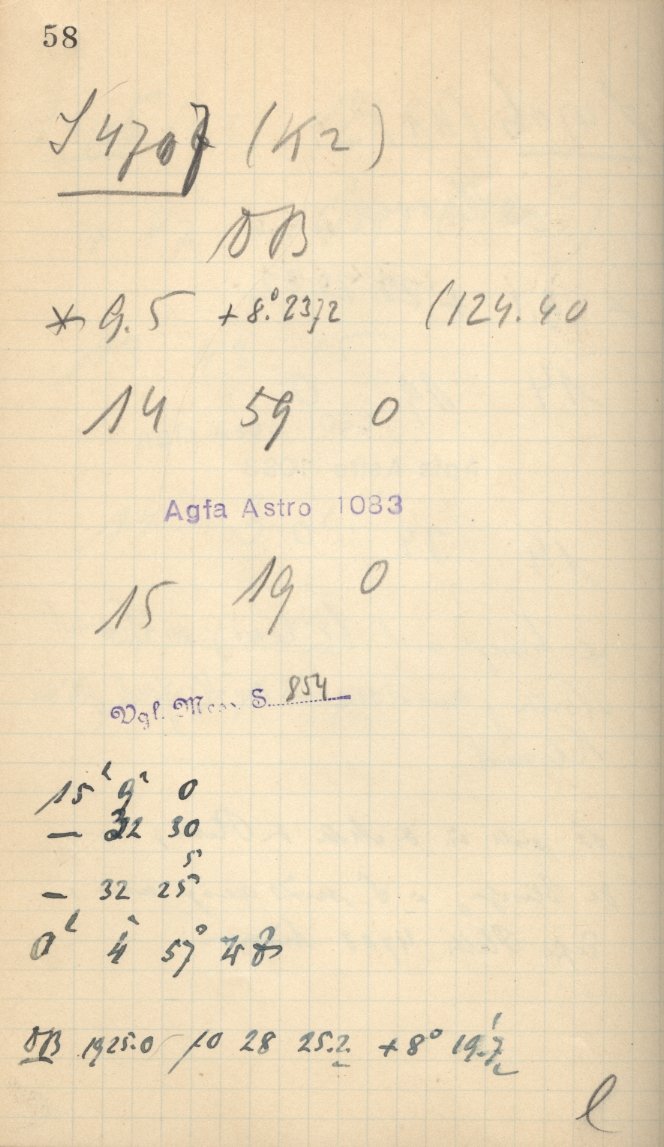 58
S 4707 (K2)
DB
* 9.5 +8.°2372 (124.40
14 59 0
Agfa Astro 1083
15 19 0
Vgl. S. 854
15 9 0
— 32 30
5
— 32 25
4 57
DB 1925.0 10 28 25.2 +8° 19.'7